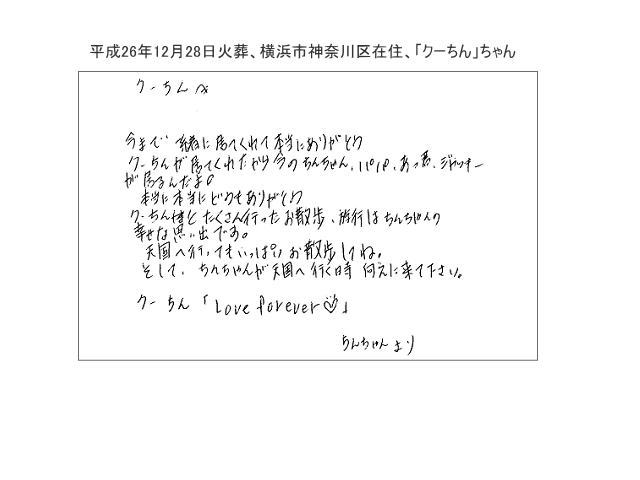 平成26年12月28日火葬、横浜市神奈川区在住、「クーちん」ちゃん
クーちんへ
今まで 一緒に居てくれて本当にありがとう
クーちんが居てくれたから今のちんちゃん、パパ、あっ君、ジャッキー
が居るんだよ。
本当に本当にどうもありがとう
クーちん とたくさん行ったお散歩、旅行はちんちゃんの
幸せな思い出です。
天国へ行ってもいっぱいお散歩してね。
そして、ちんちゃんが天国へ行く時 迎えに来て下さい。
クーちん「Love forever♡」
ちんちゃんより